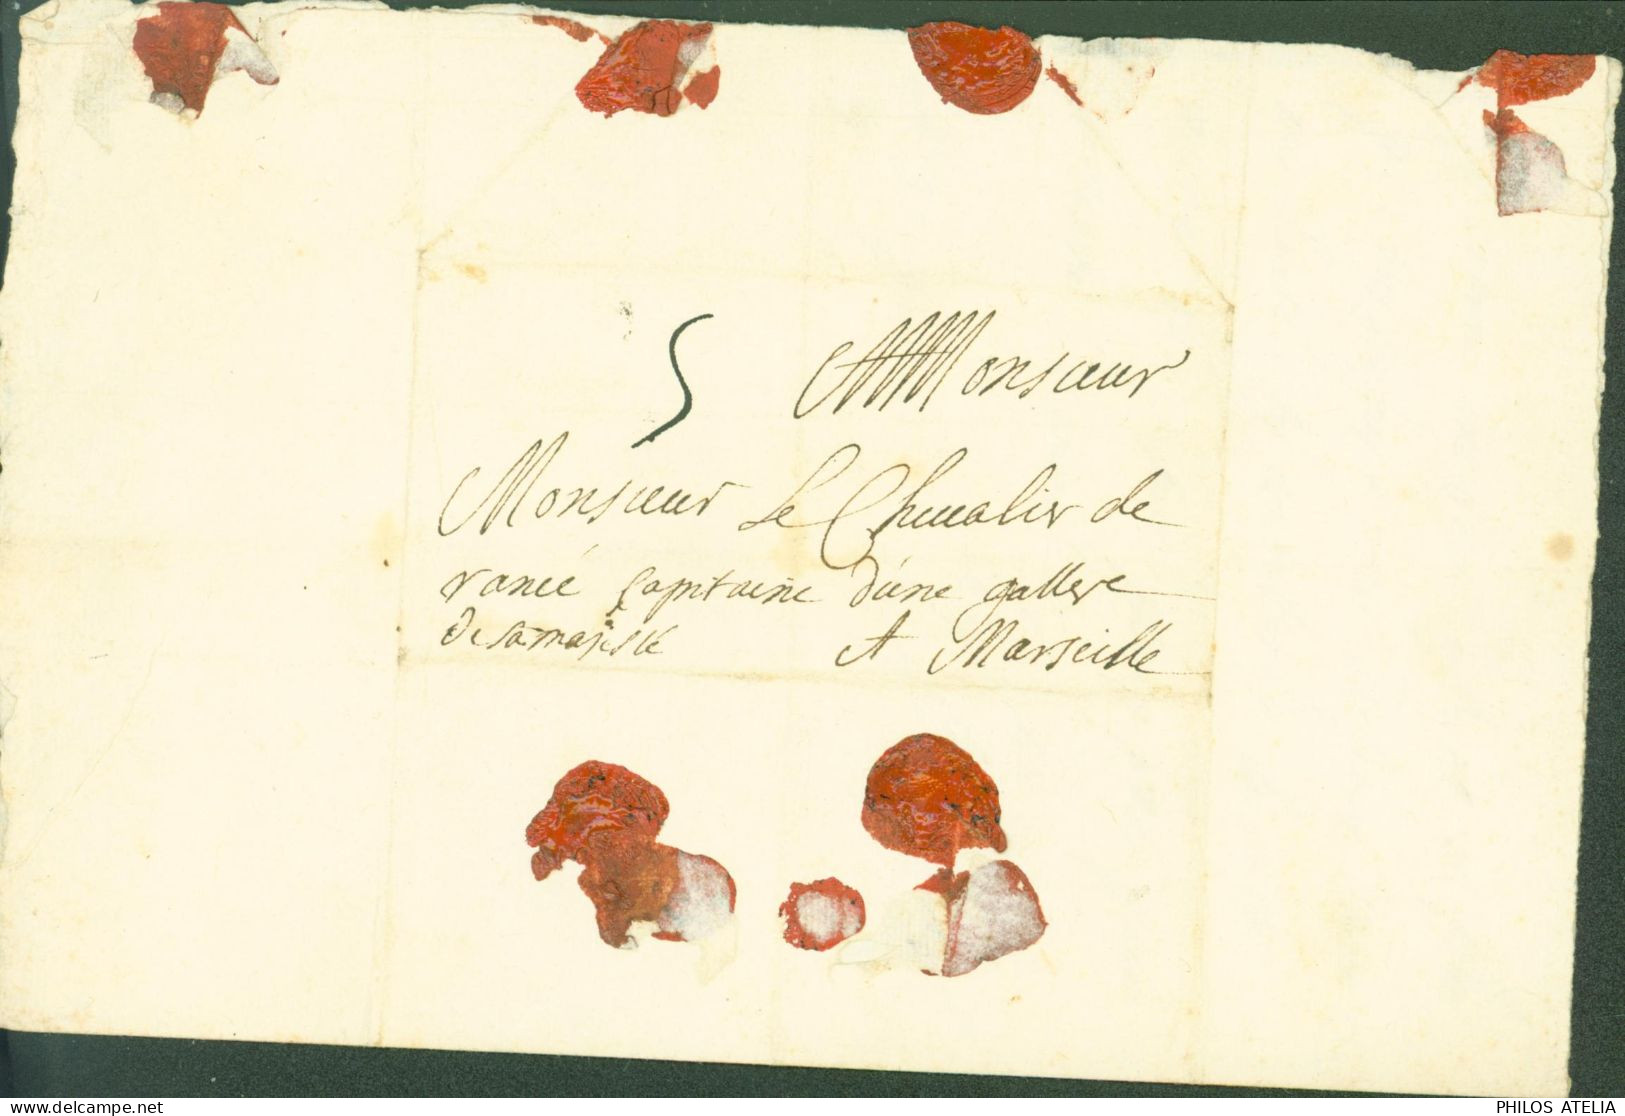 5 Monsieur
Monsieur Le Chevalier de
rancé Capitaine d'une gallere
de sa majesté A Marseille
PHILOS ATELIA